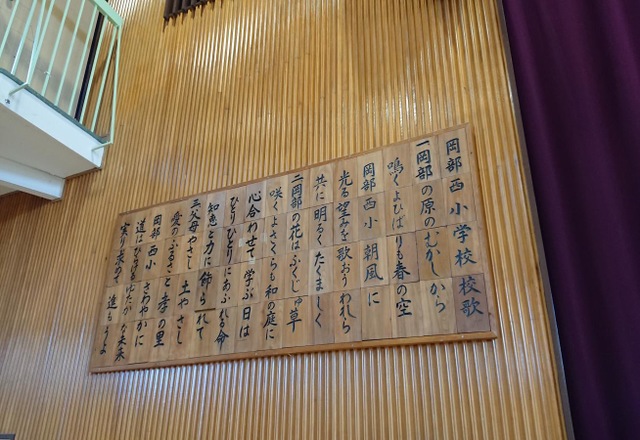 岡部西小学校 校歌
一 岡部の原のむかしから
鳴くよひばりも春の空
岡部西小 朝風に
光る望みを歌おう われら
共に 明るく たくましく
二 岡部の花は ふくじゅ草
咲くよ さくらも 和の庭に
心合わせて 学ぶ 日は
ひとりひとりに あふれる 命
知恵と力に 飾られて
三 父母やさし 土やさし
愛のふるさと 孝の里
岡部西小 さわやかに
道はひらける ゆたかな未来
実り求めて 進もうよ